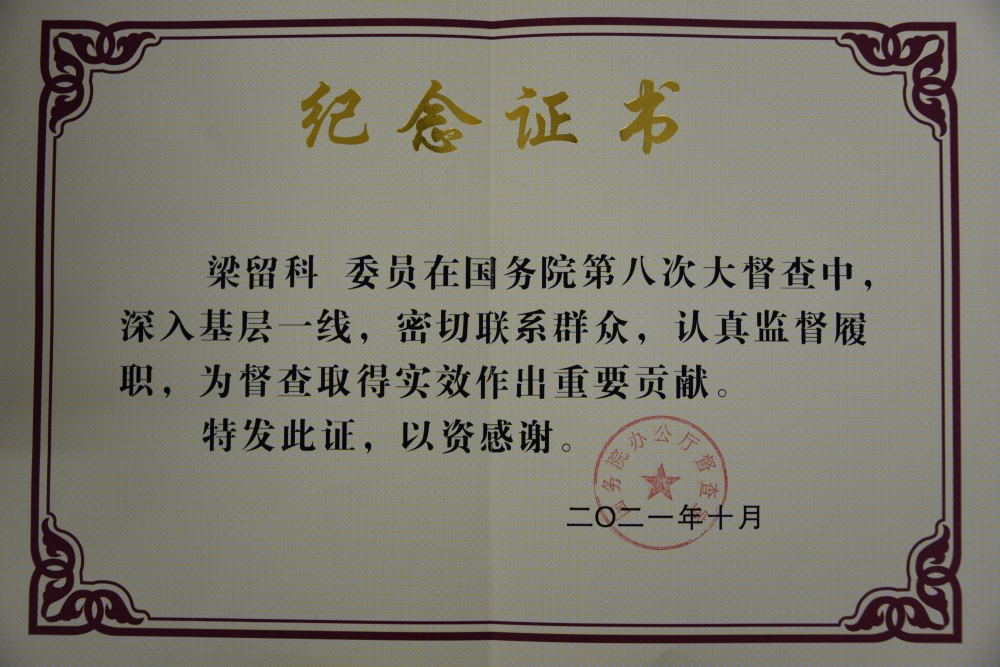 纪念证书
梁留科 委员在国务院第八次大督查中，
深入基层一线，密切联系群众，认真监督履
职，为督查取得实效作出重要贡献。
特发此证，以资感谢。
务院办公厅督查
二〇二一年十月